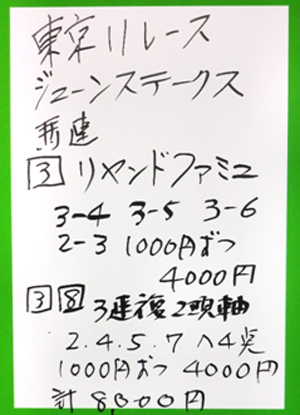 東京11レース
ジューンステークス
馬連
3 リヤンドファミユ
3-4 3-5 3-6
2-3 1000円ずつ
4000円
3 8 3連複2頭軸
2.4.5.7 へ4点
1000円ずつ 4000円
計8,000円